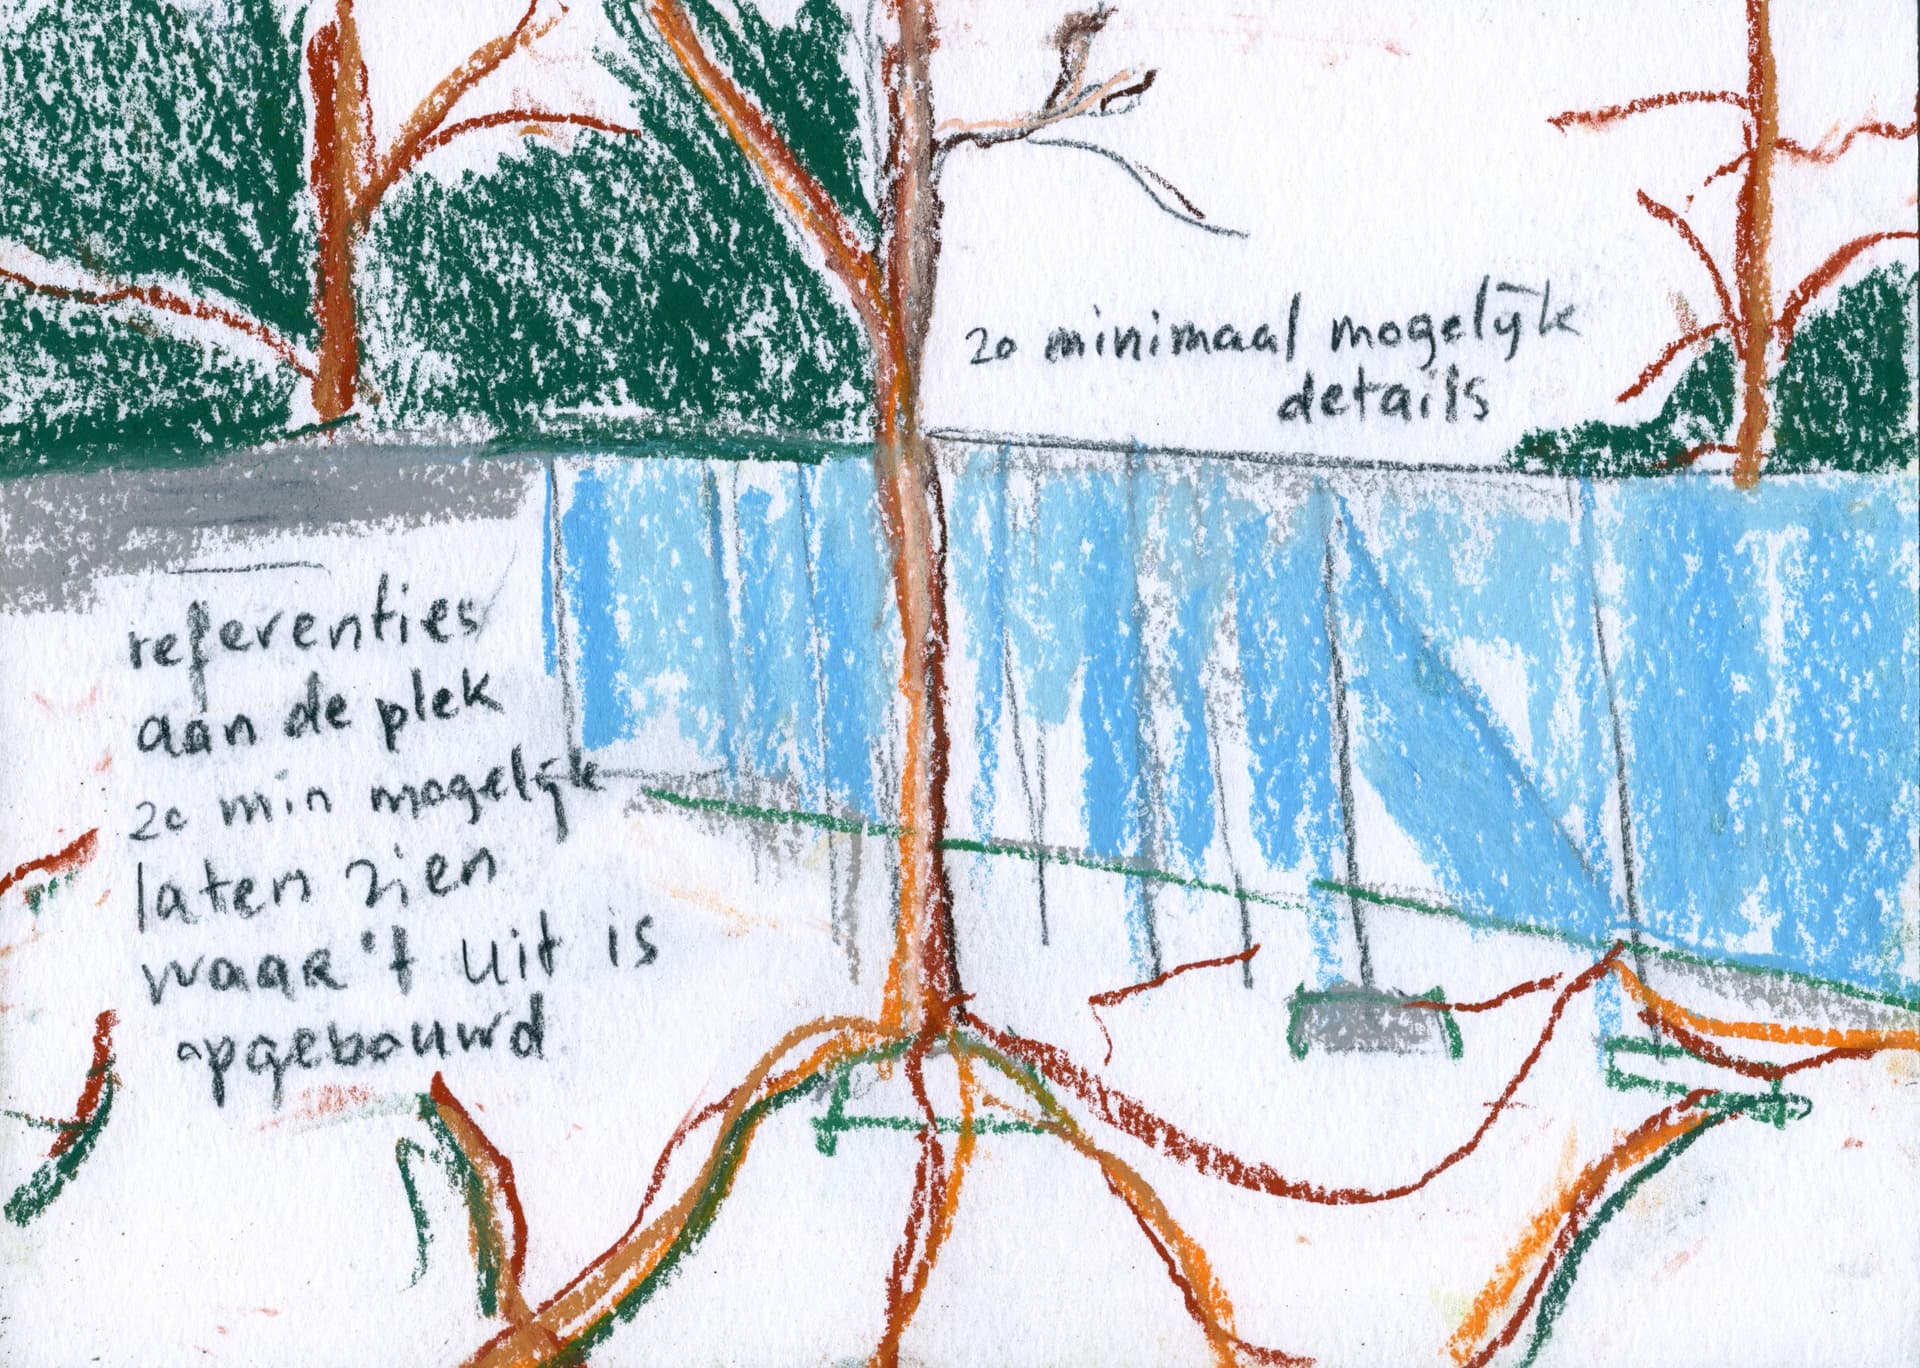 zo minimaal mogelijk
details
referenties
aan de plek
zo min mogelijk
laten zien
waar 't uit is
opgebouwd